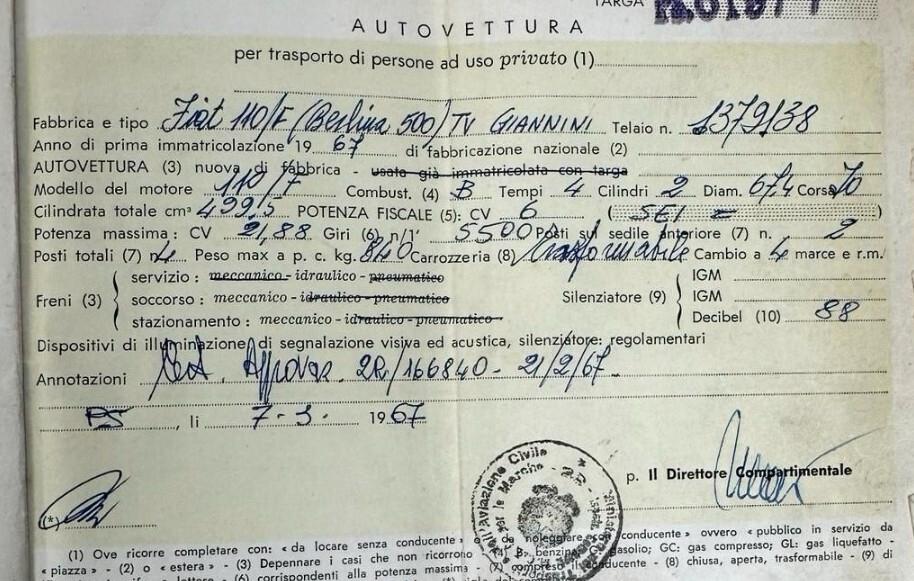 TARGA
AUTOVETTURA
per trasporto di persone ad uso privato (1)
Fabbrica e tipo Fiat 110/F (Berlina 500) TV GIANNINI Telaio n. 1379138
Anno di prima immatricolazione 1967 di fabbricazione nazionale (2)
AUTOVETTURA (3) nuova di fabbrica - usata già immatricolata con targa
Modello del motore 110/F Combust. (4) B Tempi 4 Cilindri 2 Diam. 67,4 Corsa 70
Cilindrata totale cm³ 499,5 POTENZA FISCALE (5): CV 6 ( SEI = )
Potenza massima: CV 21,88 Giri (6) n/1' 5500 Posti sul sedile anteriore (7) n. 2
Posti totali (7) n. 4 Peso max a p. c. kg. 840 Carrozzeria (8) trasformabile Cambio a 4 marce e r.m.
Freni (3)
servizio: meccanico - idraulico - pneumatico
soccorso: meccanico - idraulico - pneumatico
stazionamento: meccanico - idraulico - pneumatico
Silenziatore (9)
IGM
IGM
Decibel (10) 88
Dispositivi di illuminazione, di segnalazione visiva ed acustica, silenziatore: regolamentari
Annotazioni Approvaz. 2R/166840 - 21/2/67
PS, li 7-3- 1967
p. Il Direttore Compartimentale
(*)
Aviazione Civile
per le Marche
(1) Ove ricorre completare con: « da locare senza conducente » o « da noleggiare conducente » ovvero « pubblico in servizio da
« piazza » - (2) o « estera » - (3) Depennare i casi che non ricorrono - (4) B, benzina gasolio; GC: gas compresso; GL: gas liquefatto -
(6) corrispondenti alla potenza massima - (7) compreso il conducente - (8) chiusa, aperta, trasformabile - (9) di